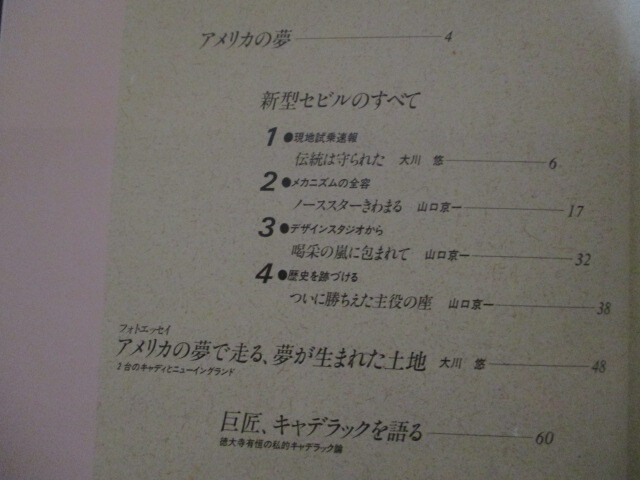 アメリカの夢 4
新型セビルのすべて
1 ●現地試乗速報
伝統は守られた 大川 悠 6
2 ●メカニズムの全容
ノーススターきわまる 山口京一 17
3 ●デザインスタジオから
喝采の嵐に包まれて 山口京一 32
4 ●歴史を跡づける
ついに勝ちえた主役の座 山口京一 38
フォトエッセイ
アメリカの夢で走る、夢が生まれた土地 大川 悠 48
2台のキャディとニューイングランド
巨匠、キャデラックを語る 60
徳大寺有恒の私的キャデラック論